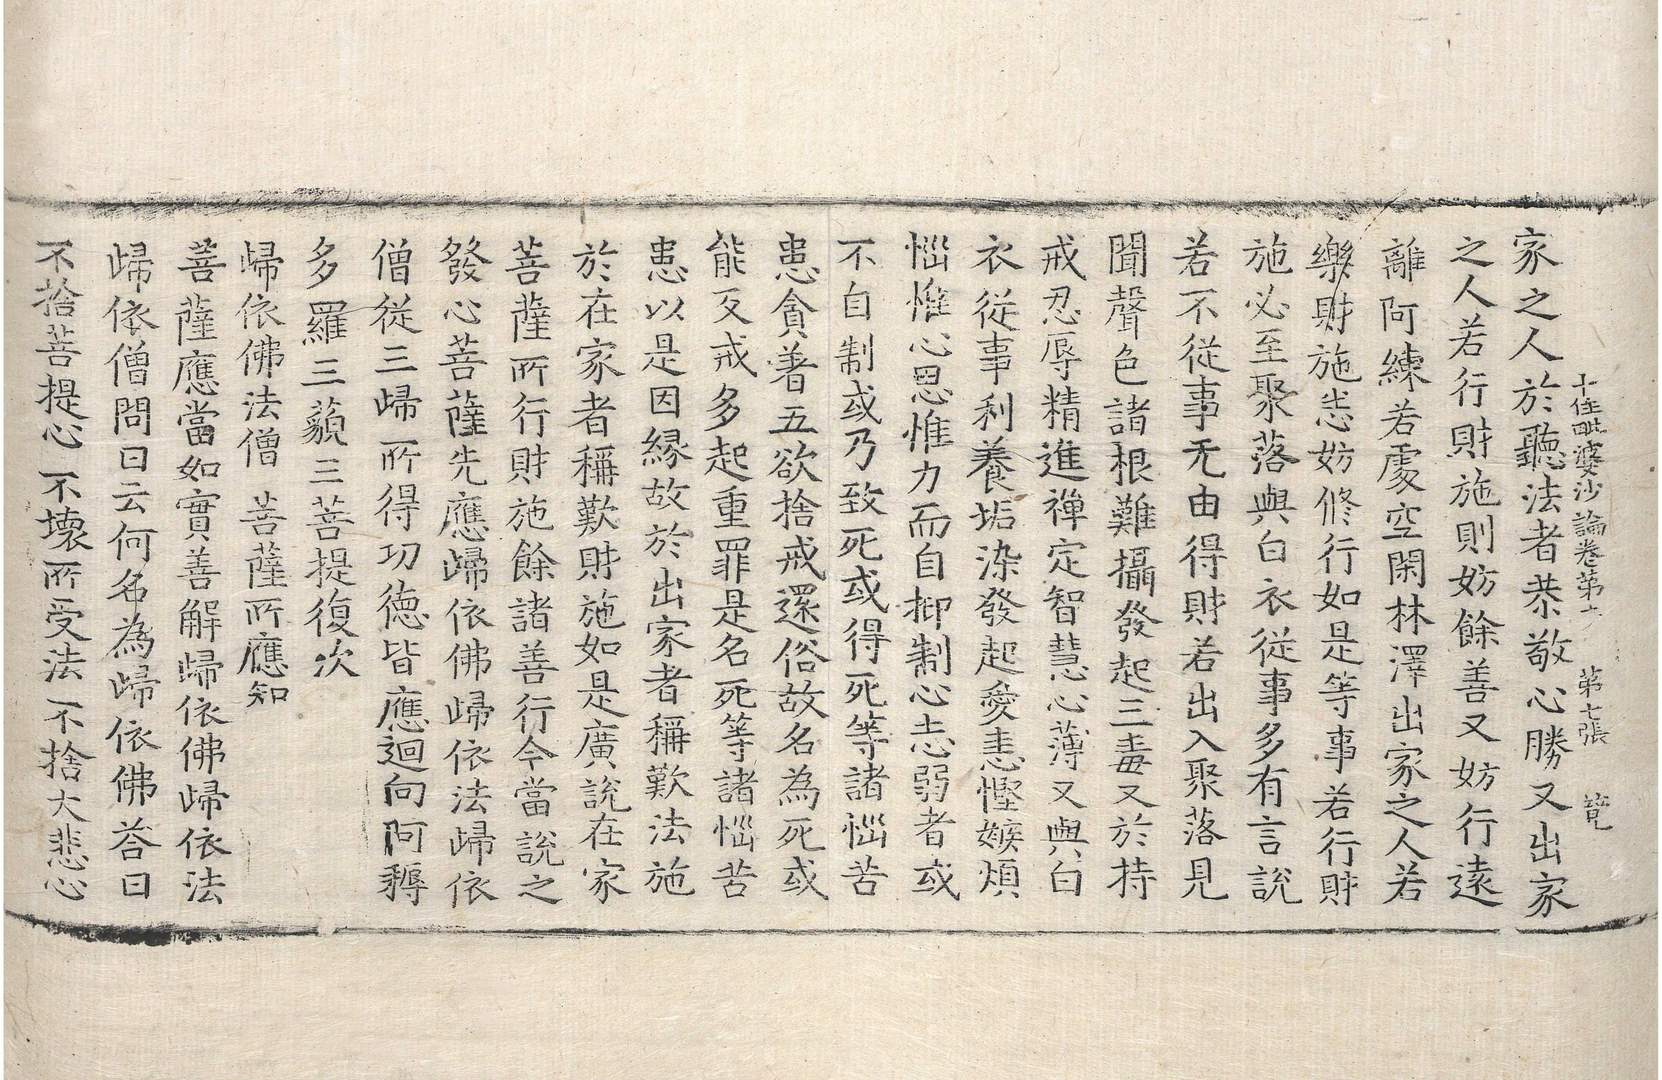 十住毗婆沙論卷第六 第七張 竟
家之人於聽法者恭敬心勝又出家
之人若行財施則妨餘善又妨行遠
離阿練若處空閑林澤出家之人若
樂財施悉妨修行如是等事若行財
施必至聚落與白衣從事多有言說
若不從事无由得財若出入聚落見
聞聲色諸根難攝發起三毒又於持
戒忍辱精進禪定智慧心薄又與白
衣從事利養垢染發起愛恚慳嫉煩
惱惟心思惟力而自抑制心志弱者或
不自制或乃致死或得死等諸惱苦
患貪著五欲捨戒還俗故名為死或
能反戒多起重罪是名死等諸惱苦
患以是因緣故於出家者稱歎法施
於在家者稱歎財施如是廣說在家
菩薩所行財施餘諸善行今當說之
發心菩薩先應歸依佛歸依法歸依
僧從三歸所得功德皆應迴向阿耨
多羅三藐三菩提復次
歸依佛法僧 菩薩所應知
菩薩應當如實善解歸依佛歸依法
歸依僧問曰云何名為歸依佛荅曰
不捨菩提心不壞所受法不捨大悲心